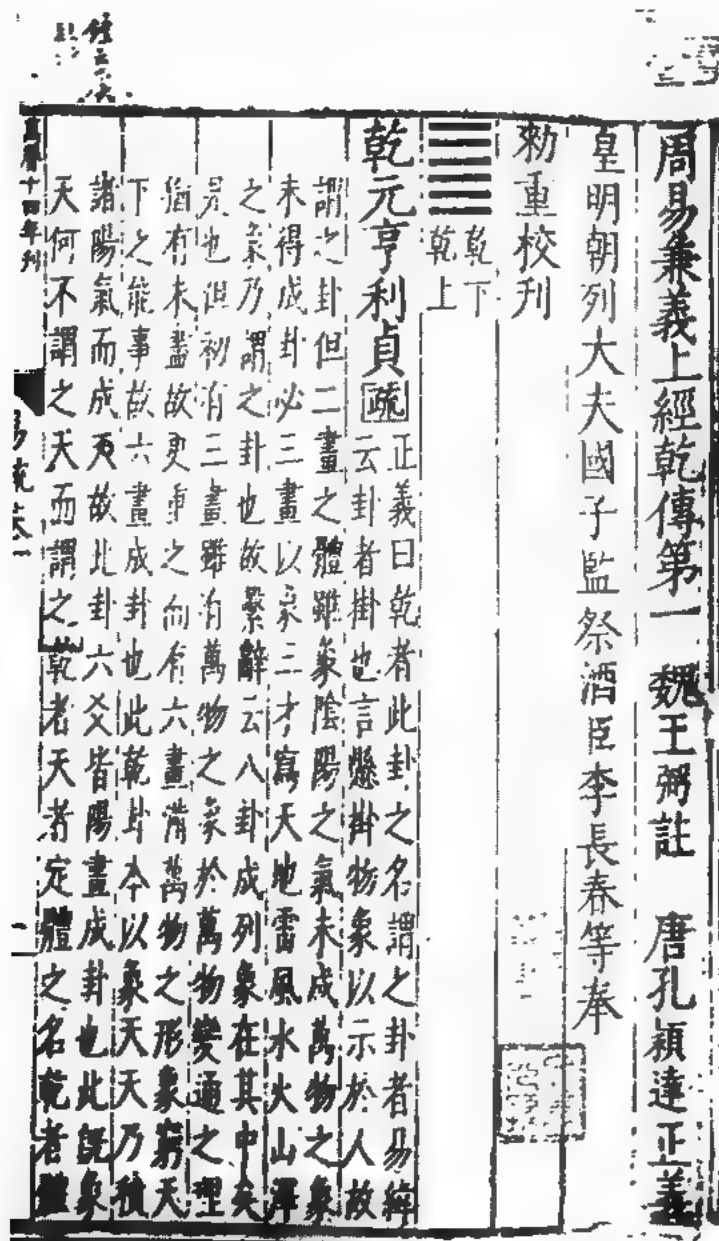 周易兼義上經乾傳第一 魏王弼註 唐孔穎達正義
皇明朝列大夫國子監祭酒臣李長春等奉
勑重校刊
乾下
乾上
乾元亨利貞 疏
正義曰乾者此卦之名謂之卦者易緯
云卦者掛也言懸掛物象以示於人故
謂之卦但二畫之體雖象陰陽之氣未成萬物之象
未得成卦必三畫以象三才寫天地雷風水火山澤
之象乃謂之卦也故繫辭云八卦成列象在其中矣
是也但初有三畫雖有萬物之象於萬物變通之理
猶有未盡故更重之而有六畫備萬物之形象窮天
下之能事故六畫成卦也此乾卦本以象天天乃積
諸陽氣而成天故此卦六爻皆陽畫成卦也此旣象
天何不謂之天而謂之乾者天者定體之名乾者體
萬曆十四年刊
易疏卷一
一